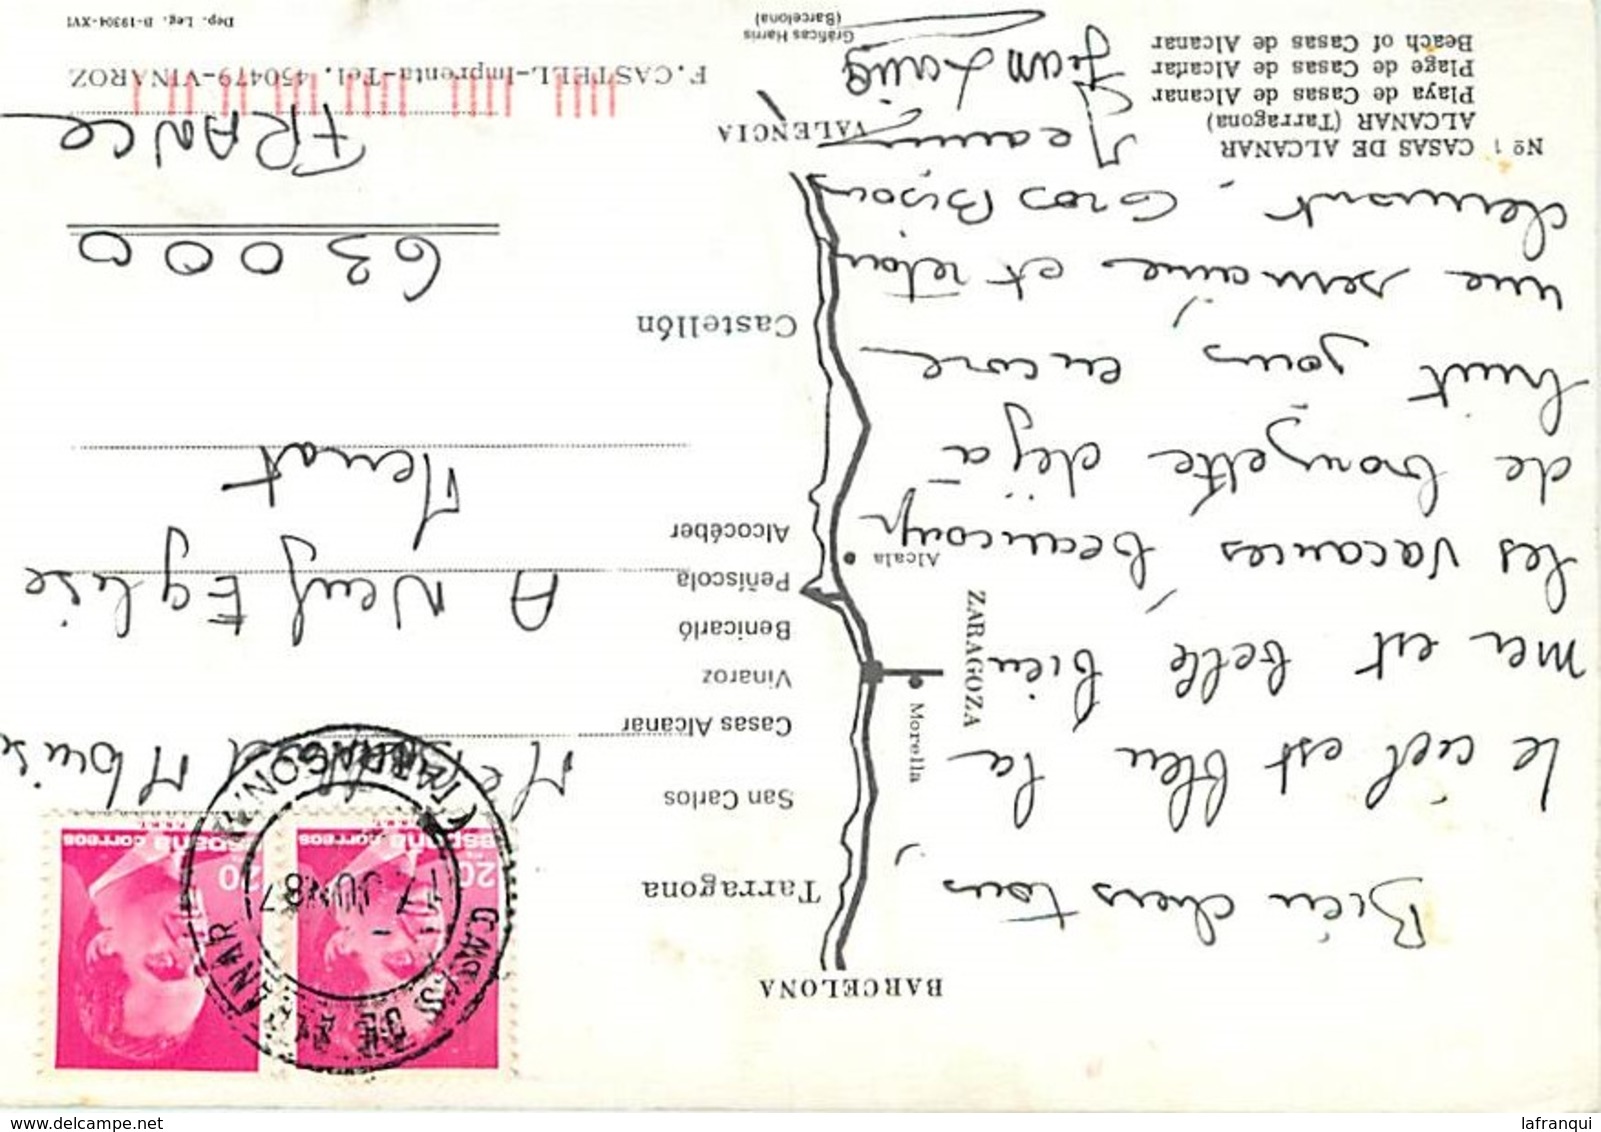 Nº 1 CASAS DE ALCANAR
ALCANAR (Tarragona)
Playa de Casas de Alcanar
Plage de Casas de Alcanar
Beach of Casas de Alcanar
Gráficas Harris
(Barcelona)
F. CASTELL-Imprenta-Tel. 450479-VINAROZ
Dep. Leg. B-19304-XVI
BARCELONA
Tarragona
San Carlos
Casas Alcanar
Vinaroz
Benicarló
Peñíscola
Alcocéber
Castellón
VALENCIA
Morella
ZARAGOZA
Alcala
Bien chers tous,
le ciel est bleu la
mer est belle bien
les vacances, beaucoup
de bronzette déjà
huit jours, encore
une semaine, et retour
Clermont. Gros Bisous
Jean Louis
A Neuf Eglise
Menat
63000
FRANCE
20 PTA
españa correos
20
españa correos
CASAS DE ALCANAR
(TARRAGONA)
17 JUN 87
lafranqui